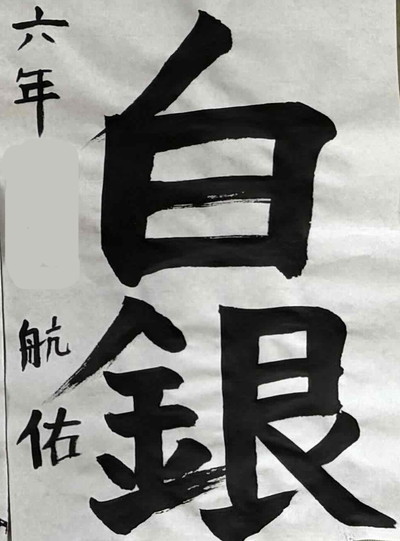 白銀
六年
航佑